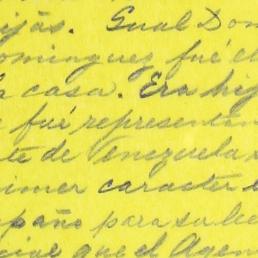 ijas. Gual Dom
ominguez fué el
la casa. Era hij
e fué representan
te de enezuela
rimer caracter e
paño para su le
cial que el Agen